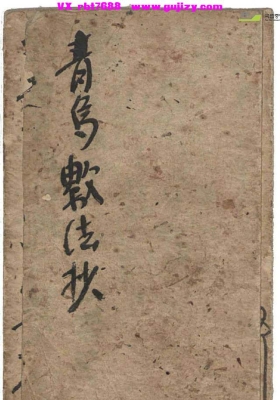 VX pbt7688 www.gujizy.com
青烏數法抄